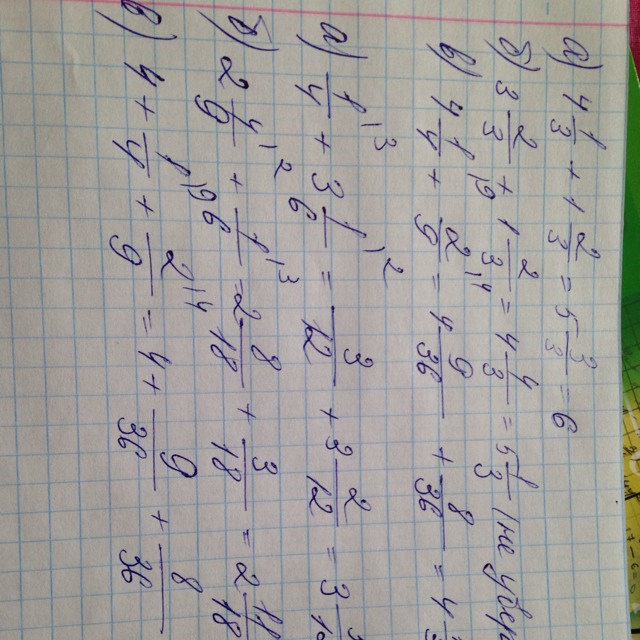 а) 4 1/3 + 1 2/3 = 5 3/3 = 6
б) 3 2/3 + 1 2/3 = 4 4/3 = 5 1/3 (не увер
в) 4 1/4 ⁹ + 2/9 ⁴ = 4 9/36 + 8/36 = 4
а) 1/4 ³ + 3 1/6 ² = 3/12 + 3 2/12 = 3
б) 2 4/9 ² + 1/6 ³ = 2 8/18 + 3/18 = 2 11/18
в) 4 + 1/4 ⁹ + 2/9 ⁴ = 4 + 9/36 + 8/36